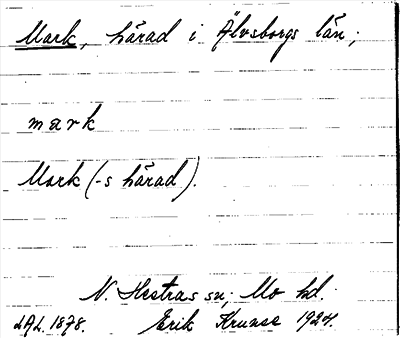 Mark, härad i Älvsborgs län;
mark
Mark (-s härad).
N. Hestras sn; Mo hd.
ULAL. 1878. Erik Kruuse 1924.